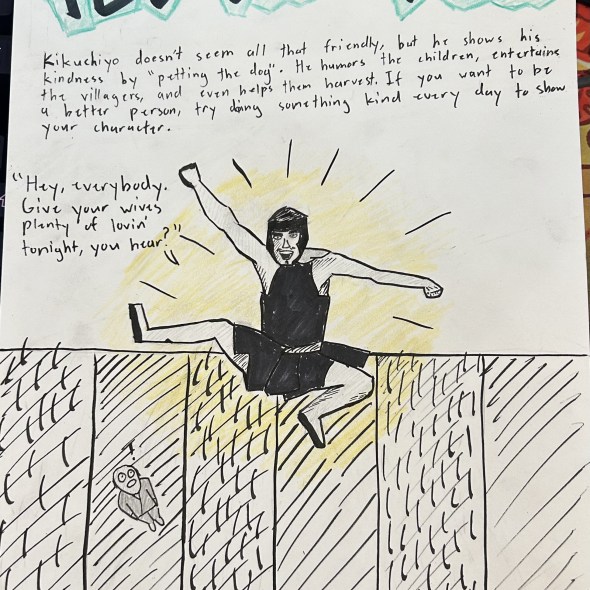 Kikuchiyo doesn't seem all that friendly, but he shows his
kindness by "petting the dog". He humors the children, entertains
the villagers, and even helps them harvest. If you want to be
a better person, try doing something kind every day to show
your character.
"Hey, everybody.
Give your wives
plenty of lovin'
tonight, you hear?"
!